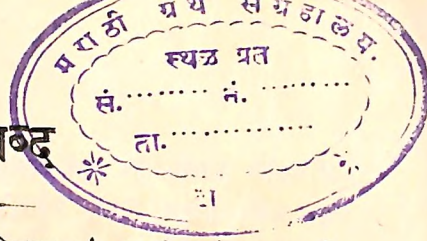 मराठी ग्रंथ संग्रहालय.
स्थळ प्रत
सं. ......... नं. .........
ता. ...............